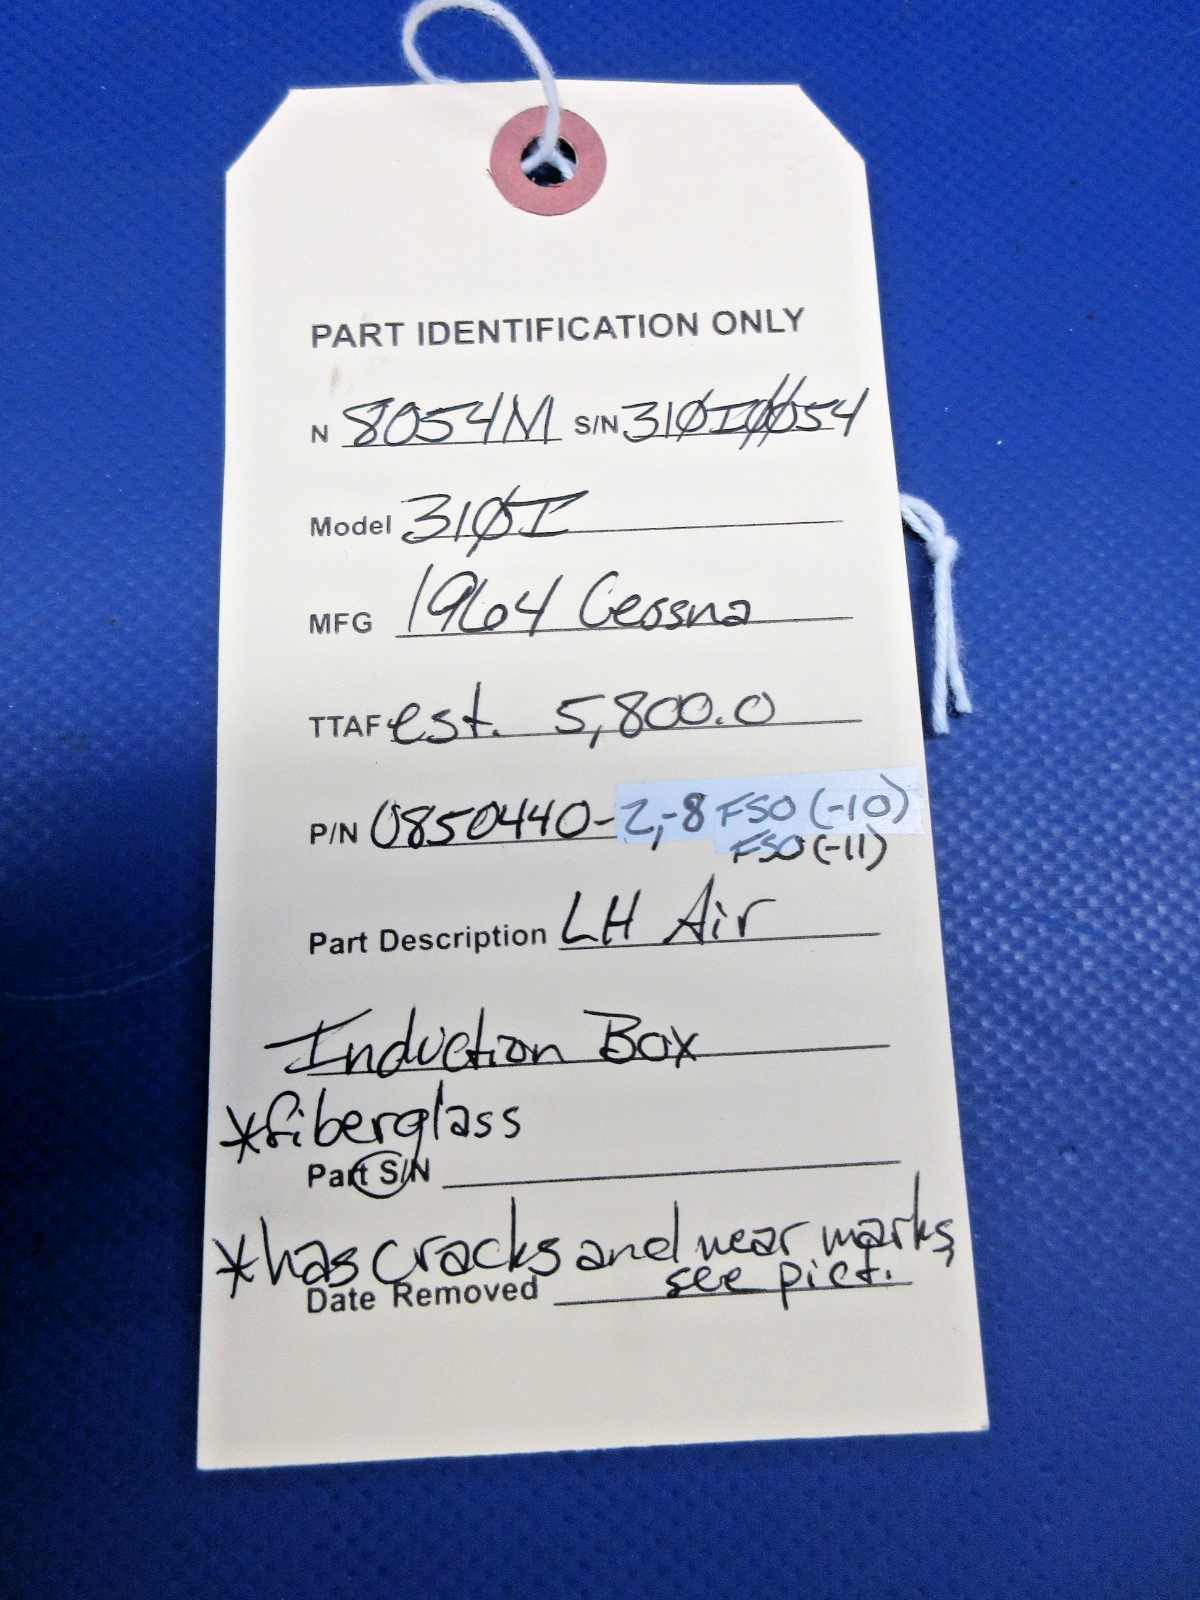 PART IDENTIFICATION ONLY
N 8054M S/N 310I0054
Model 310I
MFG 1964 Cessna
TTAF est. 5,800.0
P/N 0850440-2,-8 FSO (-10)
FSO (-11)
Part Description LH Air
Induction Box
*fiberglass
Part S/N
*has cracks and wear marks,
see pict.
Date Removed